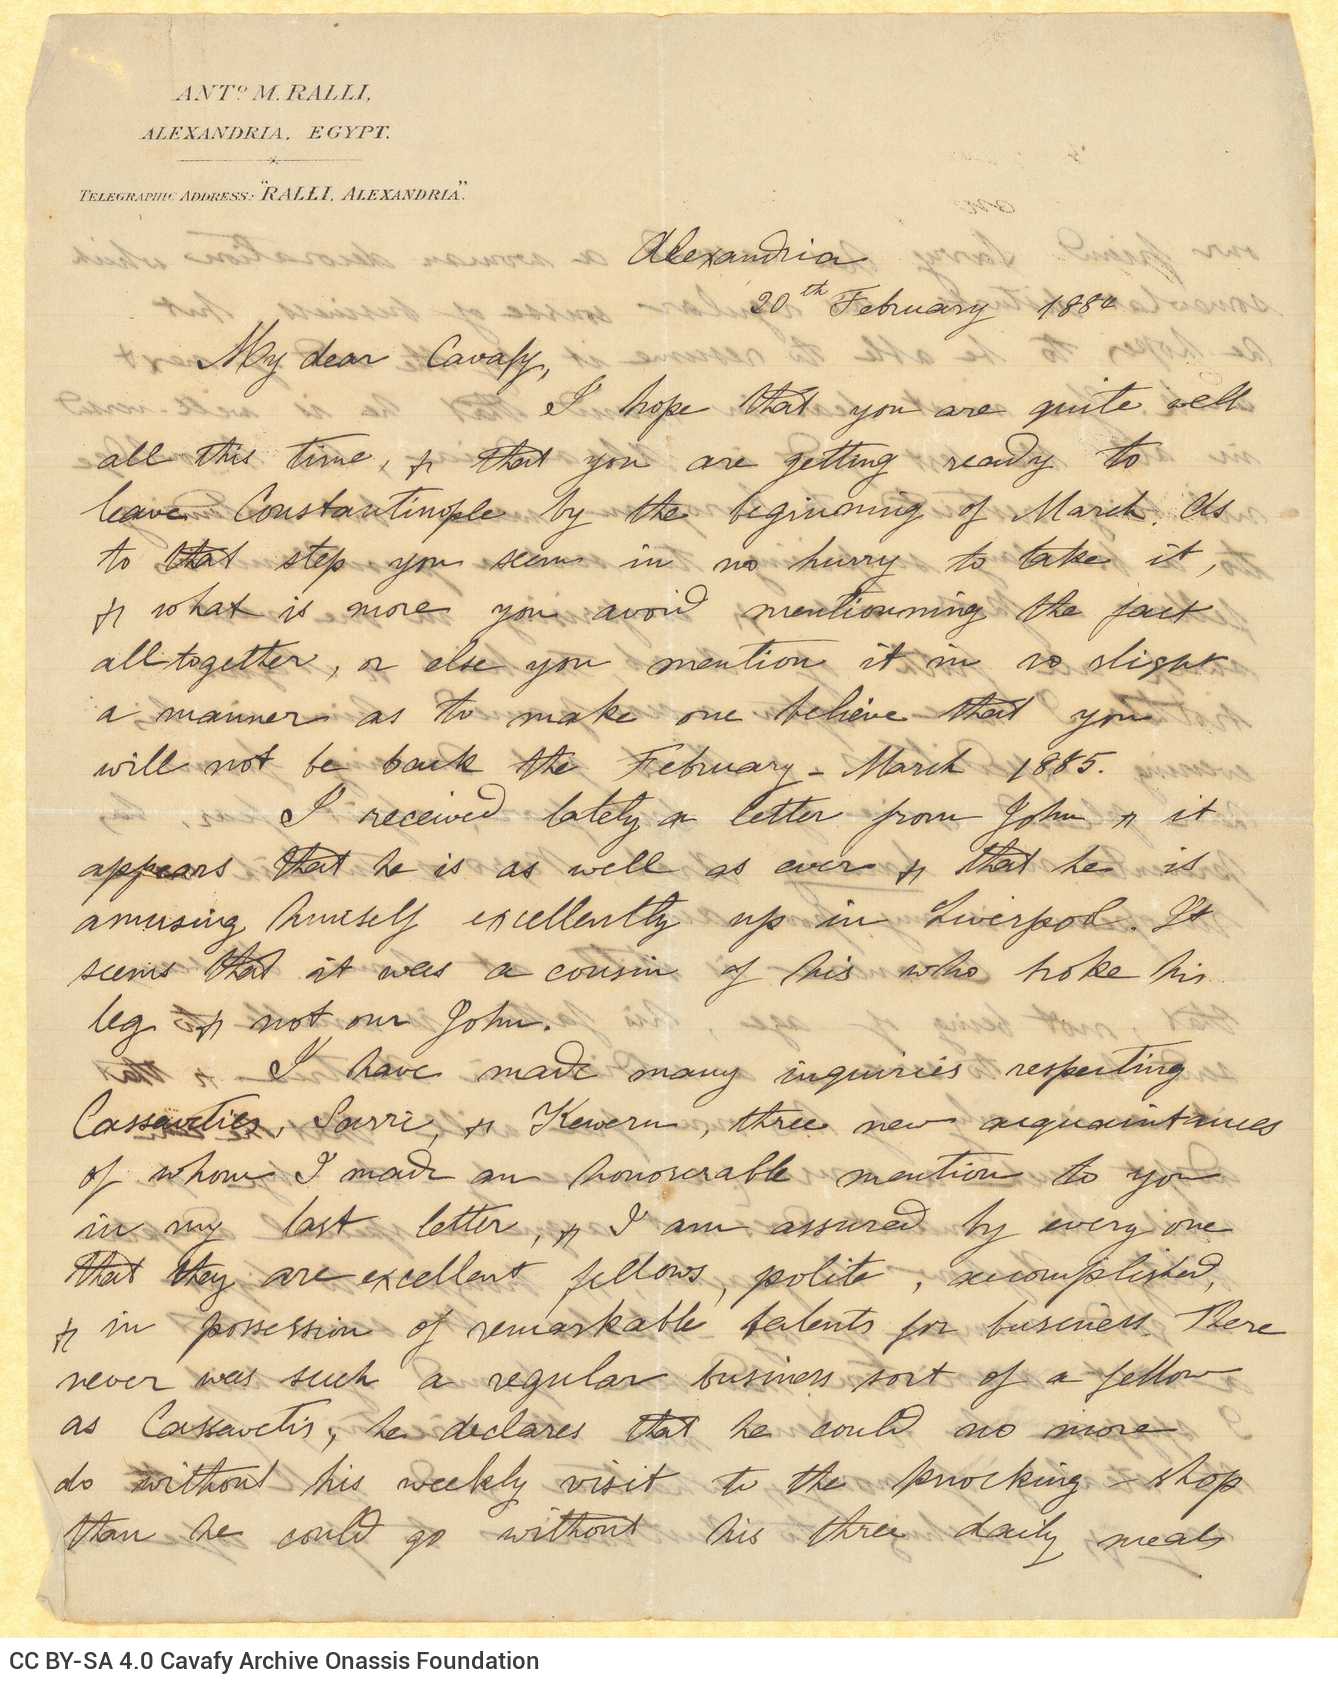 ANTº M. RALLI,
ALEXANDRIA, EGYPT.
TELEGRAPHIC ADDRESS: "RALLI, ALEXANDRIA".
Alexandria
20th February 1884
My dear Cavafy,
I hope that you are quite well
all this time, & that you are getting ready to
leave Constantinople by the beginning of March. As
to that step you seem in no hurry to take it,
& what is more you avoid mentionning the fact
alltogetter, or else you mention it in so slight
a manner as to make one believe that you
will not be back the February - March 1885.
I received lately a letter from John & it
appears that he is as well as ever & that he is
amusing himself excellently up in Liverpol. It
seems that it was a cousin of his who broke his
leg & not our John.
I have made many inquiries respecting
Cassaveties, Sarri, & Kewern, three new acquaintances
of whom I made an honoserable mention to you
in my last letter, & I am assured by every one
that they are excellent fellows, polite, accomplished,
& in possession of remarkable talents for business. There
never was such a regular business sort of a fellow
as Cassavetis; he declares that he could no more
do without his weekly visit to the knocking-shop
than he could go without his three daily meals
CC BY-SA 4.0 Cavafy Archive Onassis Foundation